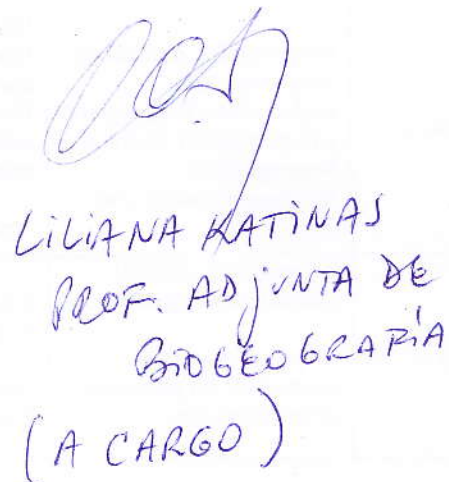 LILIANA KATINAS
PROF. ADJUNTA DE
BIOGEOGRAFÍA
(A CARGO)